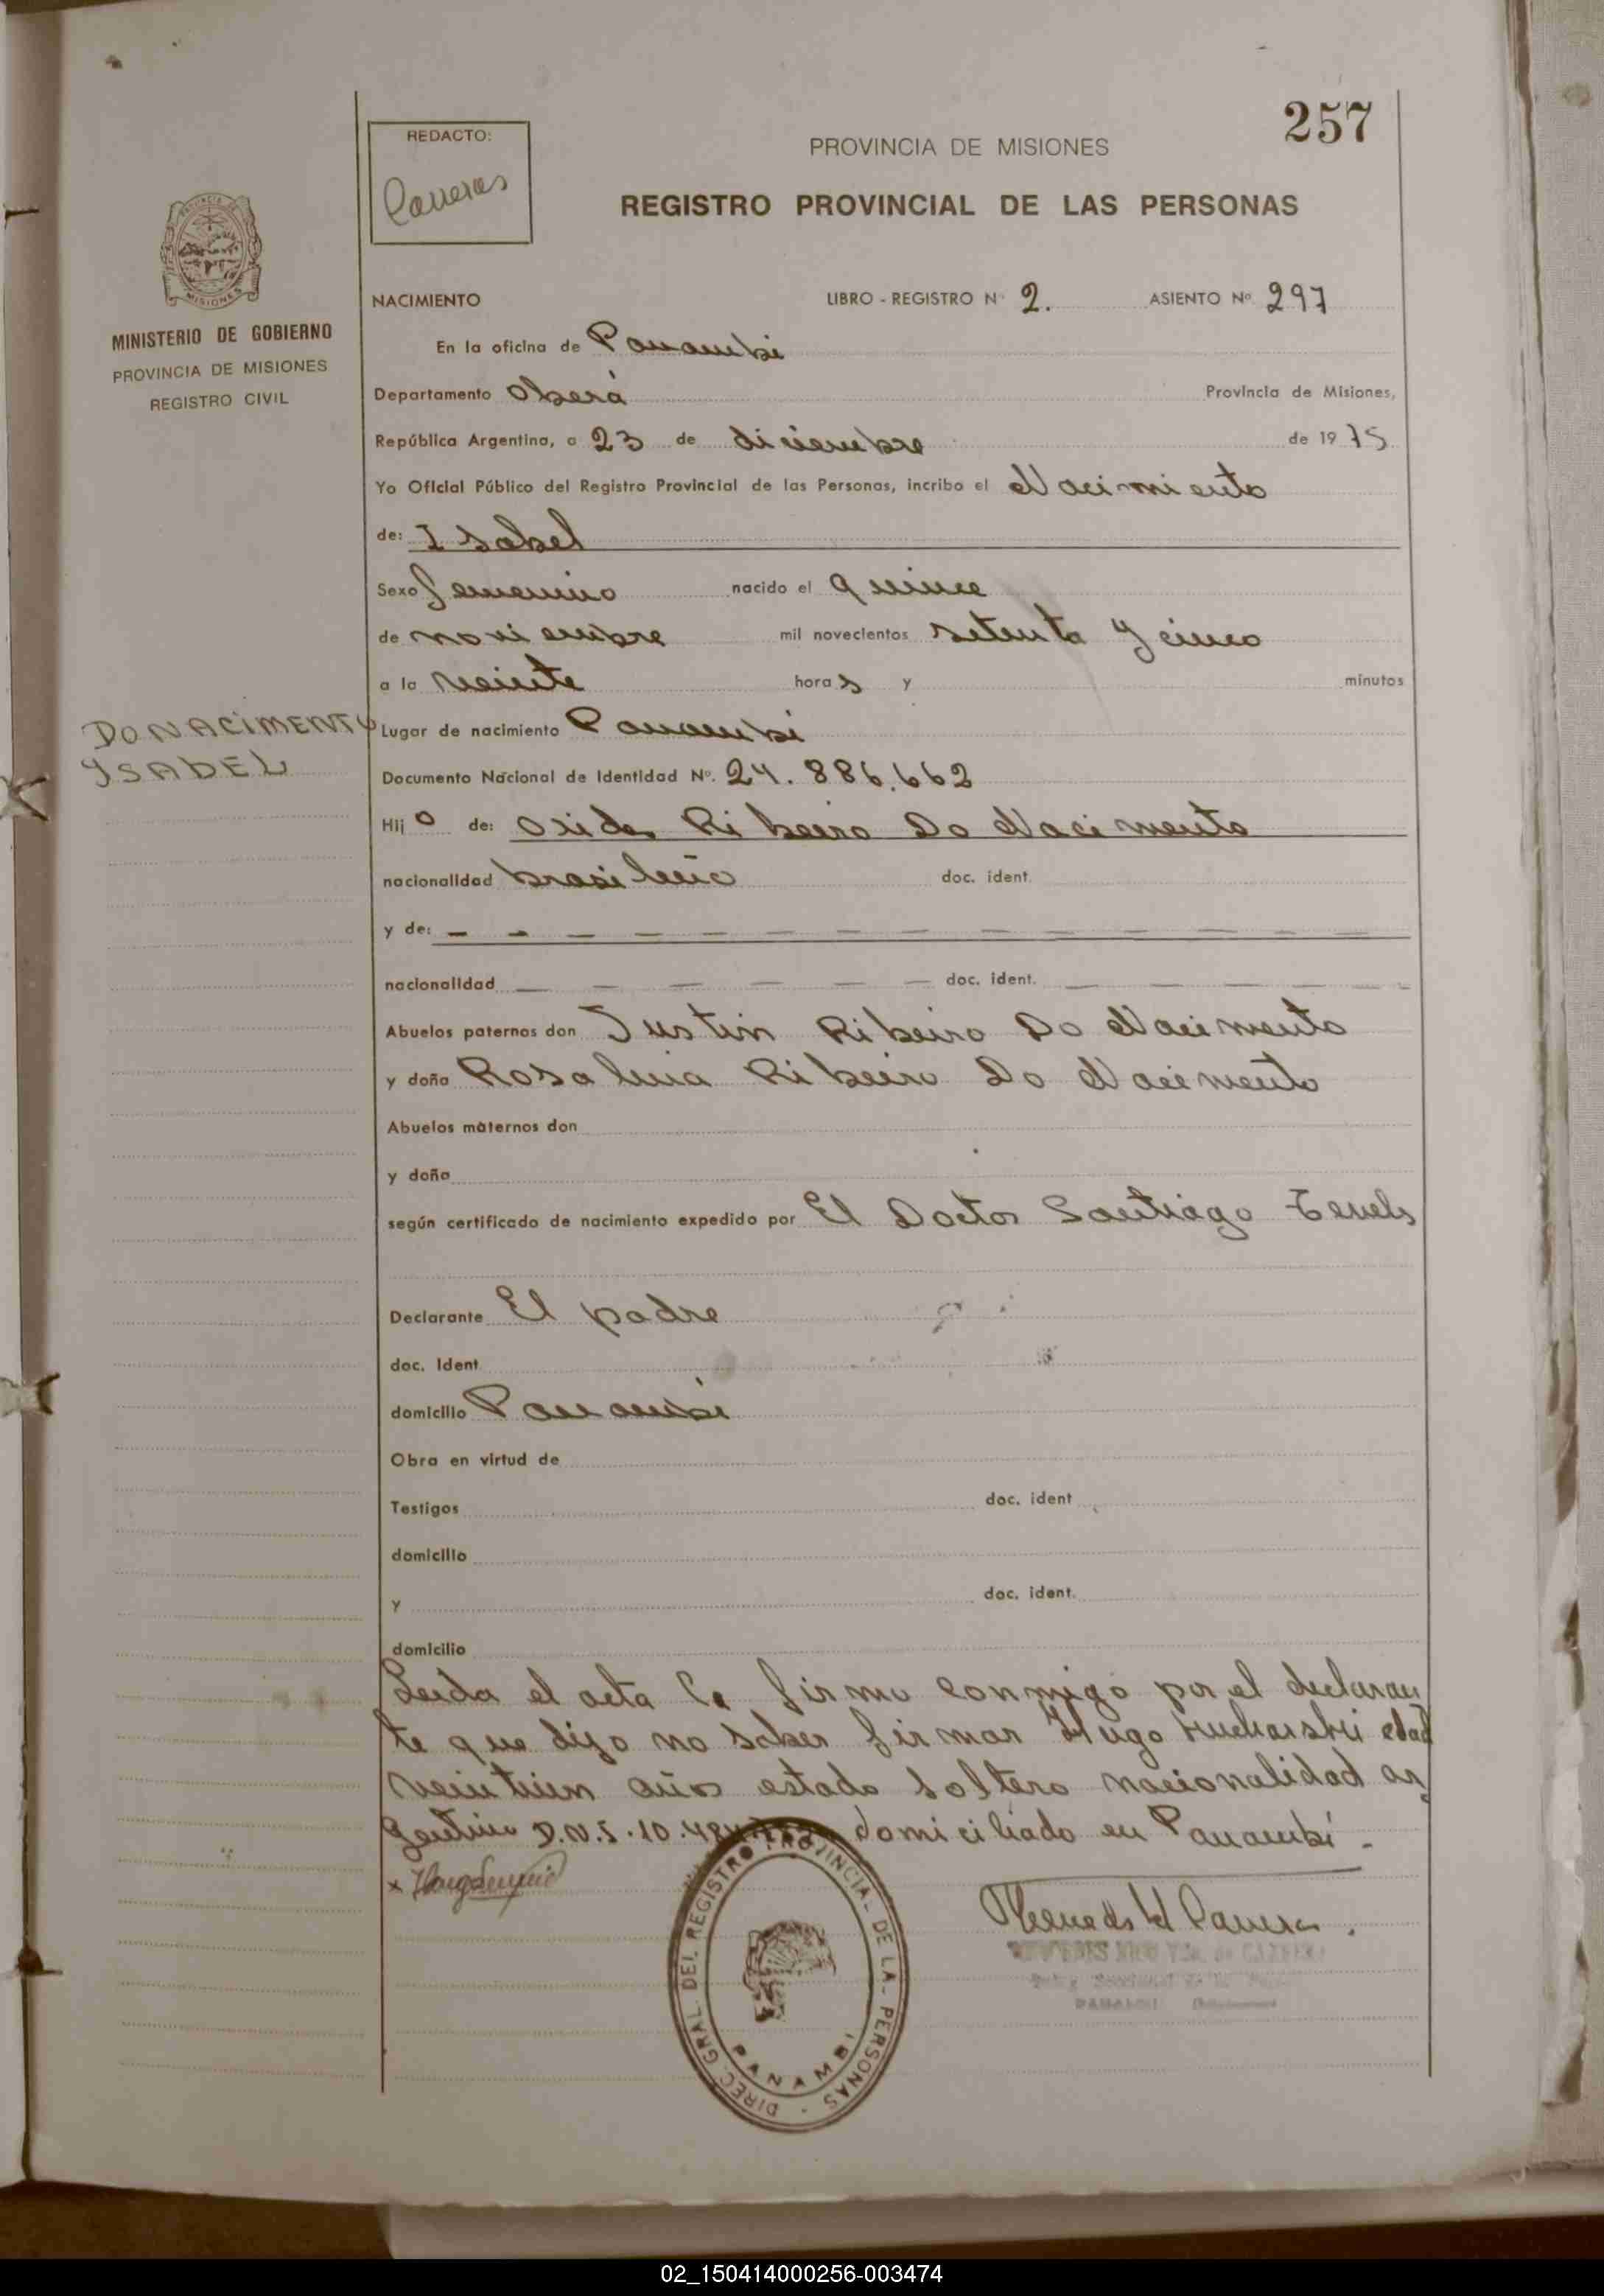 257
REDACTO:
Carreras
PROVINCIA DE MISIONES
REGISTRO PROVINCIAL DE LAS PERSONAS
MISIONES
MINISTERIO DE GOBIERNO
PROVINCIA DE MISIONES
REGISTRO CIVIL
NACIMIENTO LIBRO - REGISTRO Nº 2. ASIENTO Nº 297
En la oficina de Panambi
Departamento Oberá Provincia de Misiones,
República Argentina, a 23 de diciembre de 1975
Yo Oficial Público del Registro Provincial de las Personas, incribo el Nacimiento
de: Isabel
Sexo femenino nacido el quince
de noviembre mil novecientos setenta y cinco
a la veinte horas y minutos
DO NACIMENTO
YSABEL
Lugar de nacimiento Panambi
Documento Nacional de Identidad Nº. 24.886.662
Hijo de: Ribeiro Do Nacimento
nacionalidad brasileño doc. ident.
y de: - - - - - - - - - - - - - -
nacionalidad — — — — — — doc. ident. — — — — —
Abuelos paternos don Justin Ribeiro Do Nacimento
y doña Rosalina Ribeiro Do Nacimento
Abuelos maternos don
y doña
según certificado de nacimiento expedido por El Doctor Santiago
Declarante El padre
doc. Ident
domicilio Panambi
Obra en virtud de
Testigos doc. ident
domicilio
y doc. ident.
domicilio
Leida el acta la firma conmigo por el declaran
te que dijo no saber firmar Hugo edad
veintiun años estado soltero nacionalidad ar
gentino D.N.I. 10. domiciliado en Panambí -
DIREC. GRAL. DEL REGISTRO PROVINCIAL DE LA - PERSONAS -
PANAMBI
02_150414000256-003474